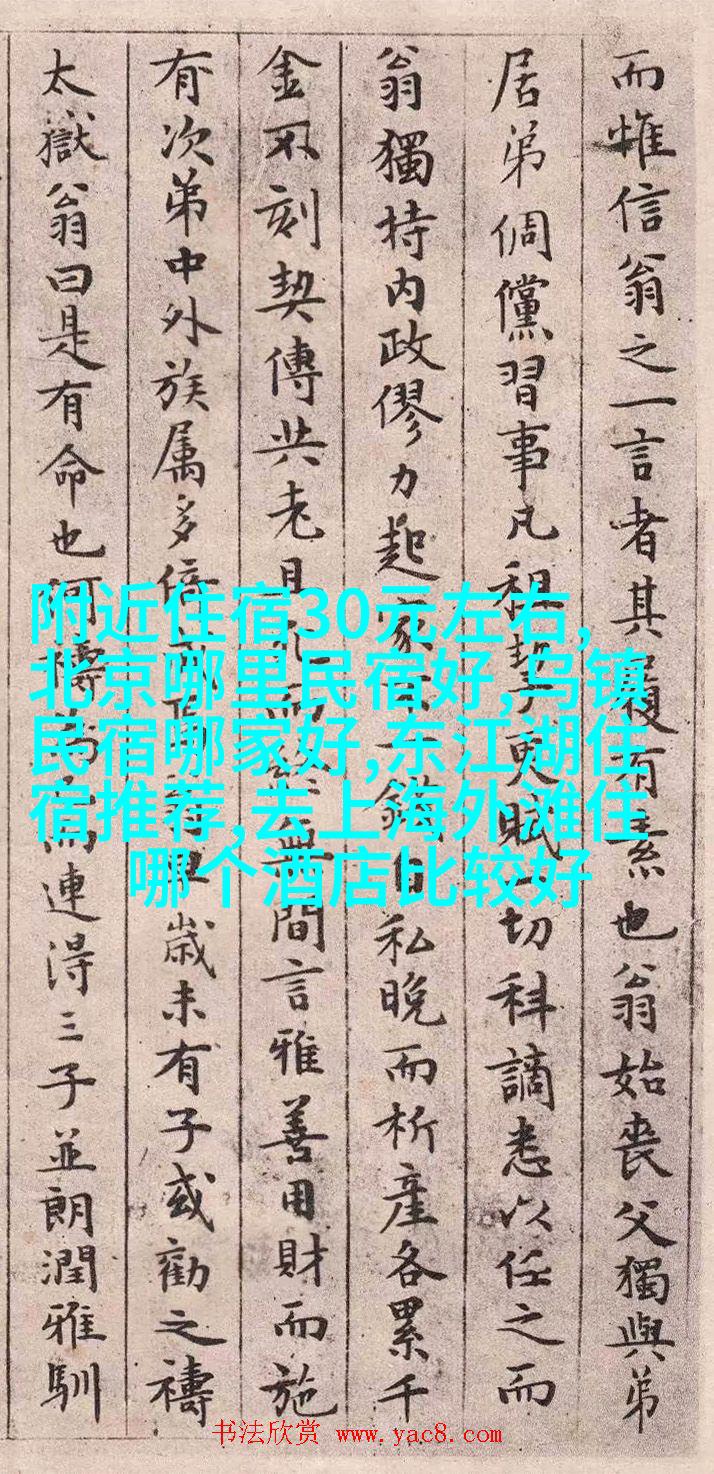 而惟信翁之一言者其履有素也翁始喪父獨與弟
居弟倜儻習事凡租契更賦一切科謫悉以任之而
翁獨持内政僇力起家一錢自私晚而析產各累千
金不刻契傳共老且而終無間言雅善用財而施
有次第中外族属多倚歲未有子或勸之禱
太嶽翁曰是有命也何禱為而連得三子並朗潤雅馴
附近住宿30元左右,
北京哪里民宿好,乌镇
民宿哪家好,东江湖住
宿推荐,去上海外滩住
哪个酒店比较好
书法欣赏 www.yac8.com